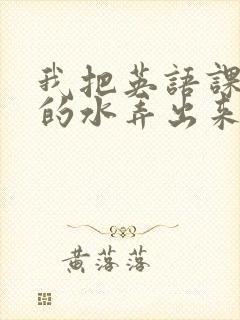 我把英語課
的水弄出来
黄落落